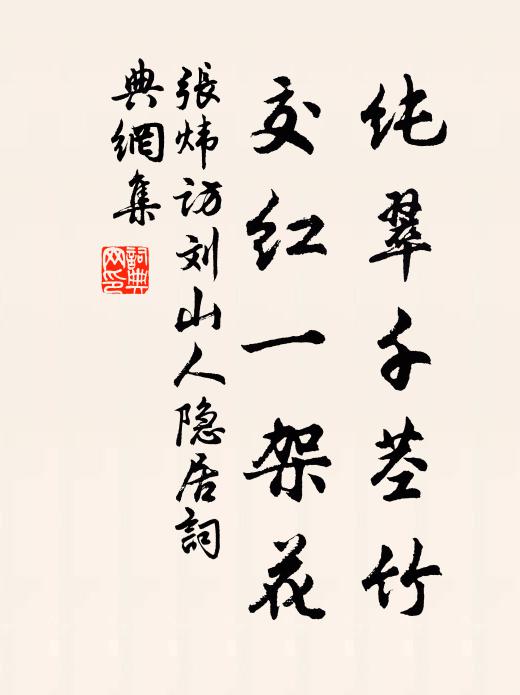 纯翠千茎竹
交红一架花
張炜访刘山人隐居詞
典網集
詞典
网印